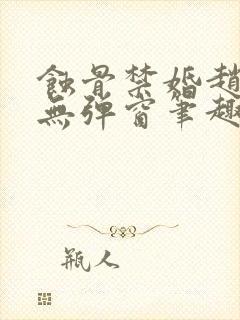 蝕骨禁婚趙
無彈窗筆趣
瓶人